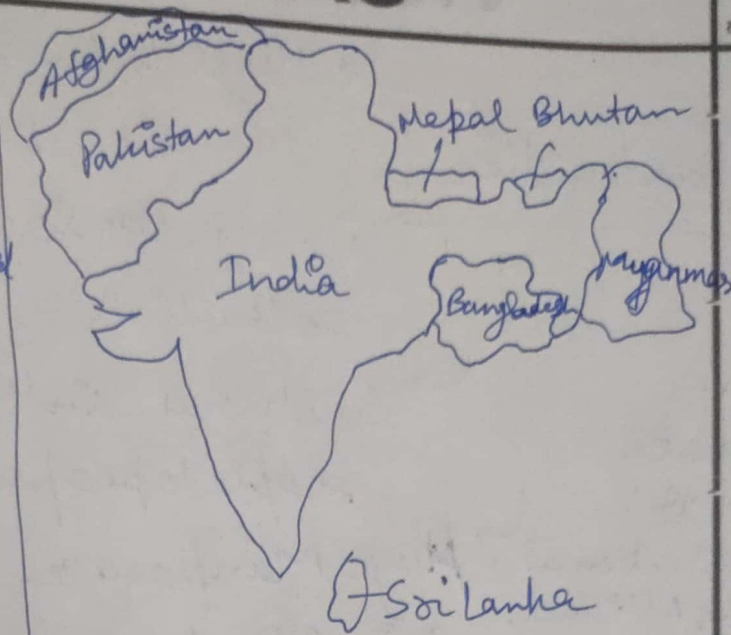 Afghanistan
Pakistan
Nepal Bhutan
India
Bangladesh
Mayanmar
Sri Lanka